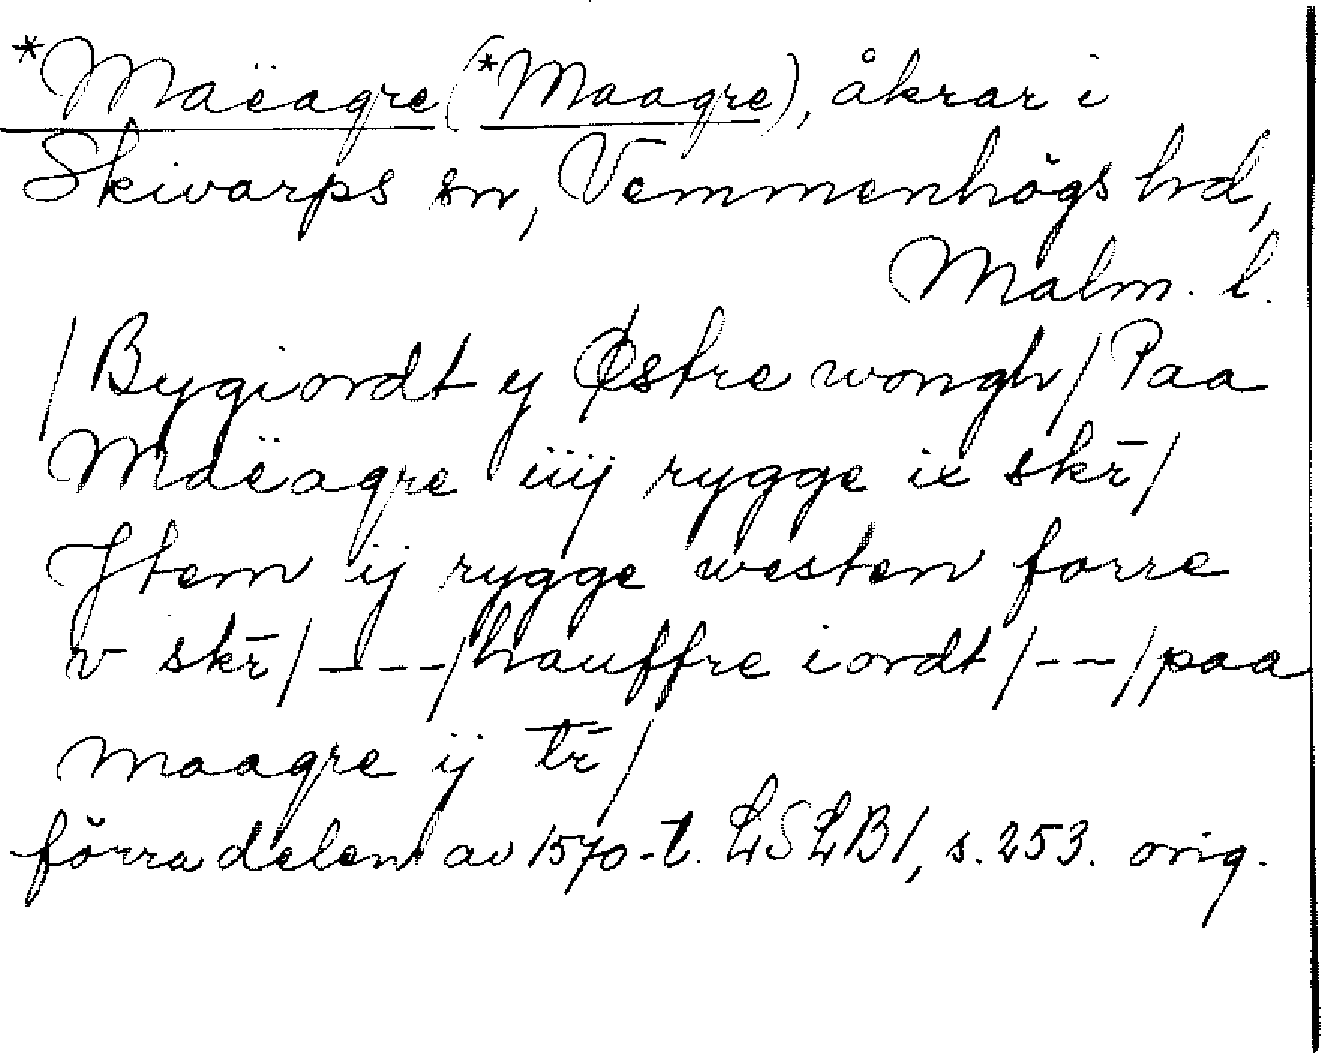 *Maëagre (*Maagre), åkrar i
Skivarps sn, Vemmenhögs hd,
Malm. l.
/Bygiordt y Østre wongh/ Paa
Maëagre iiij rygge ix skr̄/
Jtem ij rygge westen forre
v skr̄/ _ _ _ /hauffre iordt/ - - /paa
maagre ij tr̄/
förra delen av 1570-t. LSLB1, s. 253. orig.